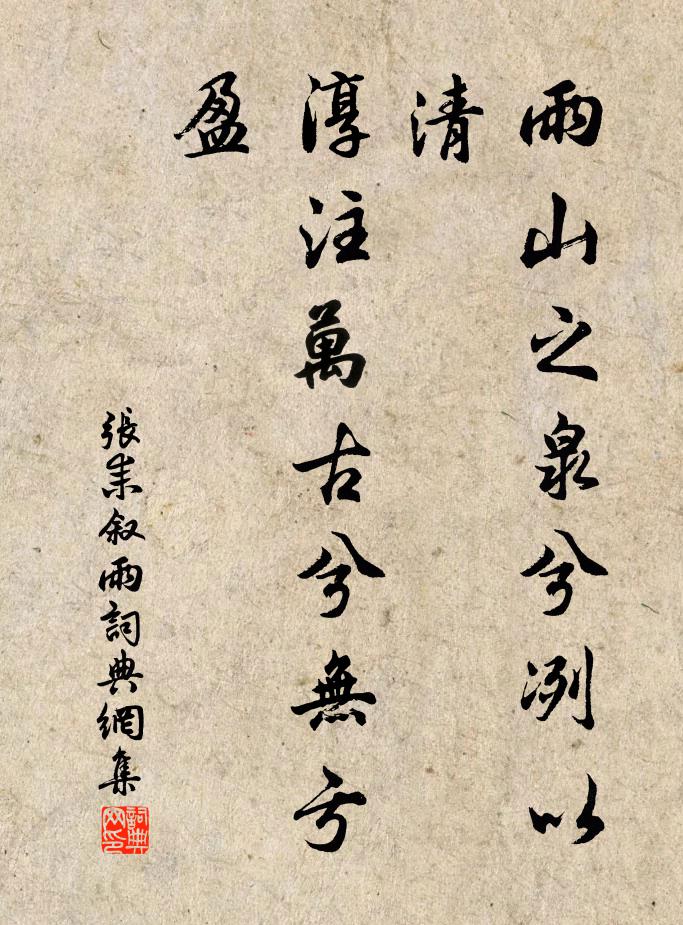 雨山之泉兮冽以
清
淳注萬古兮無亏
盈
張耒敘雨詞典網集
詞典
網印